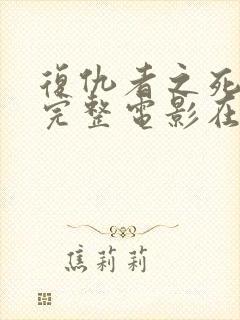 復仇者之死
完整電影在
焦莉莉